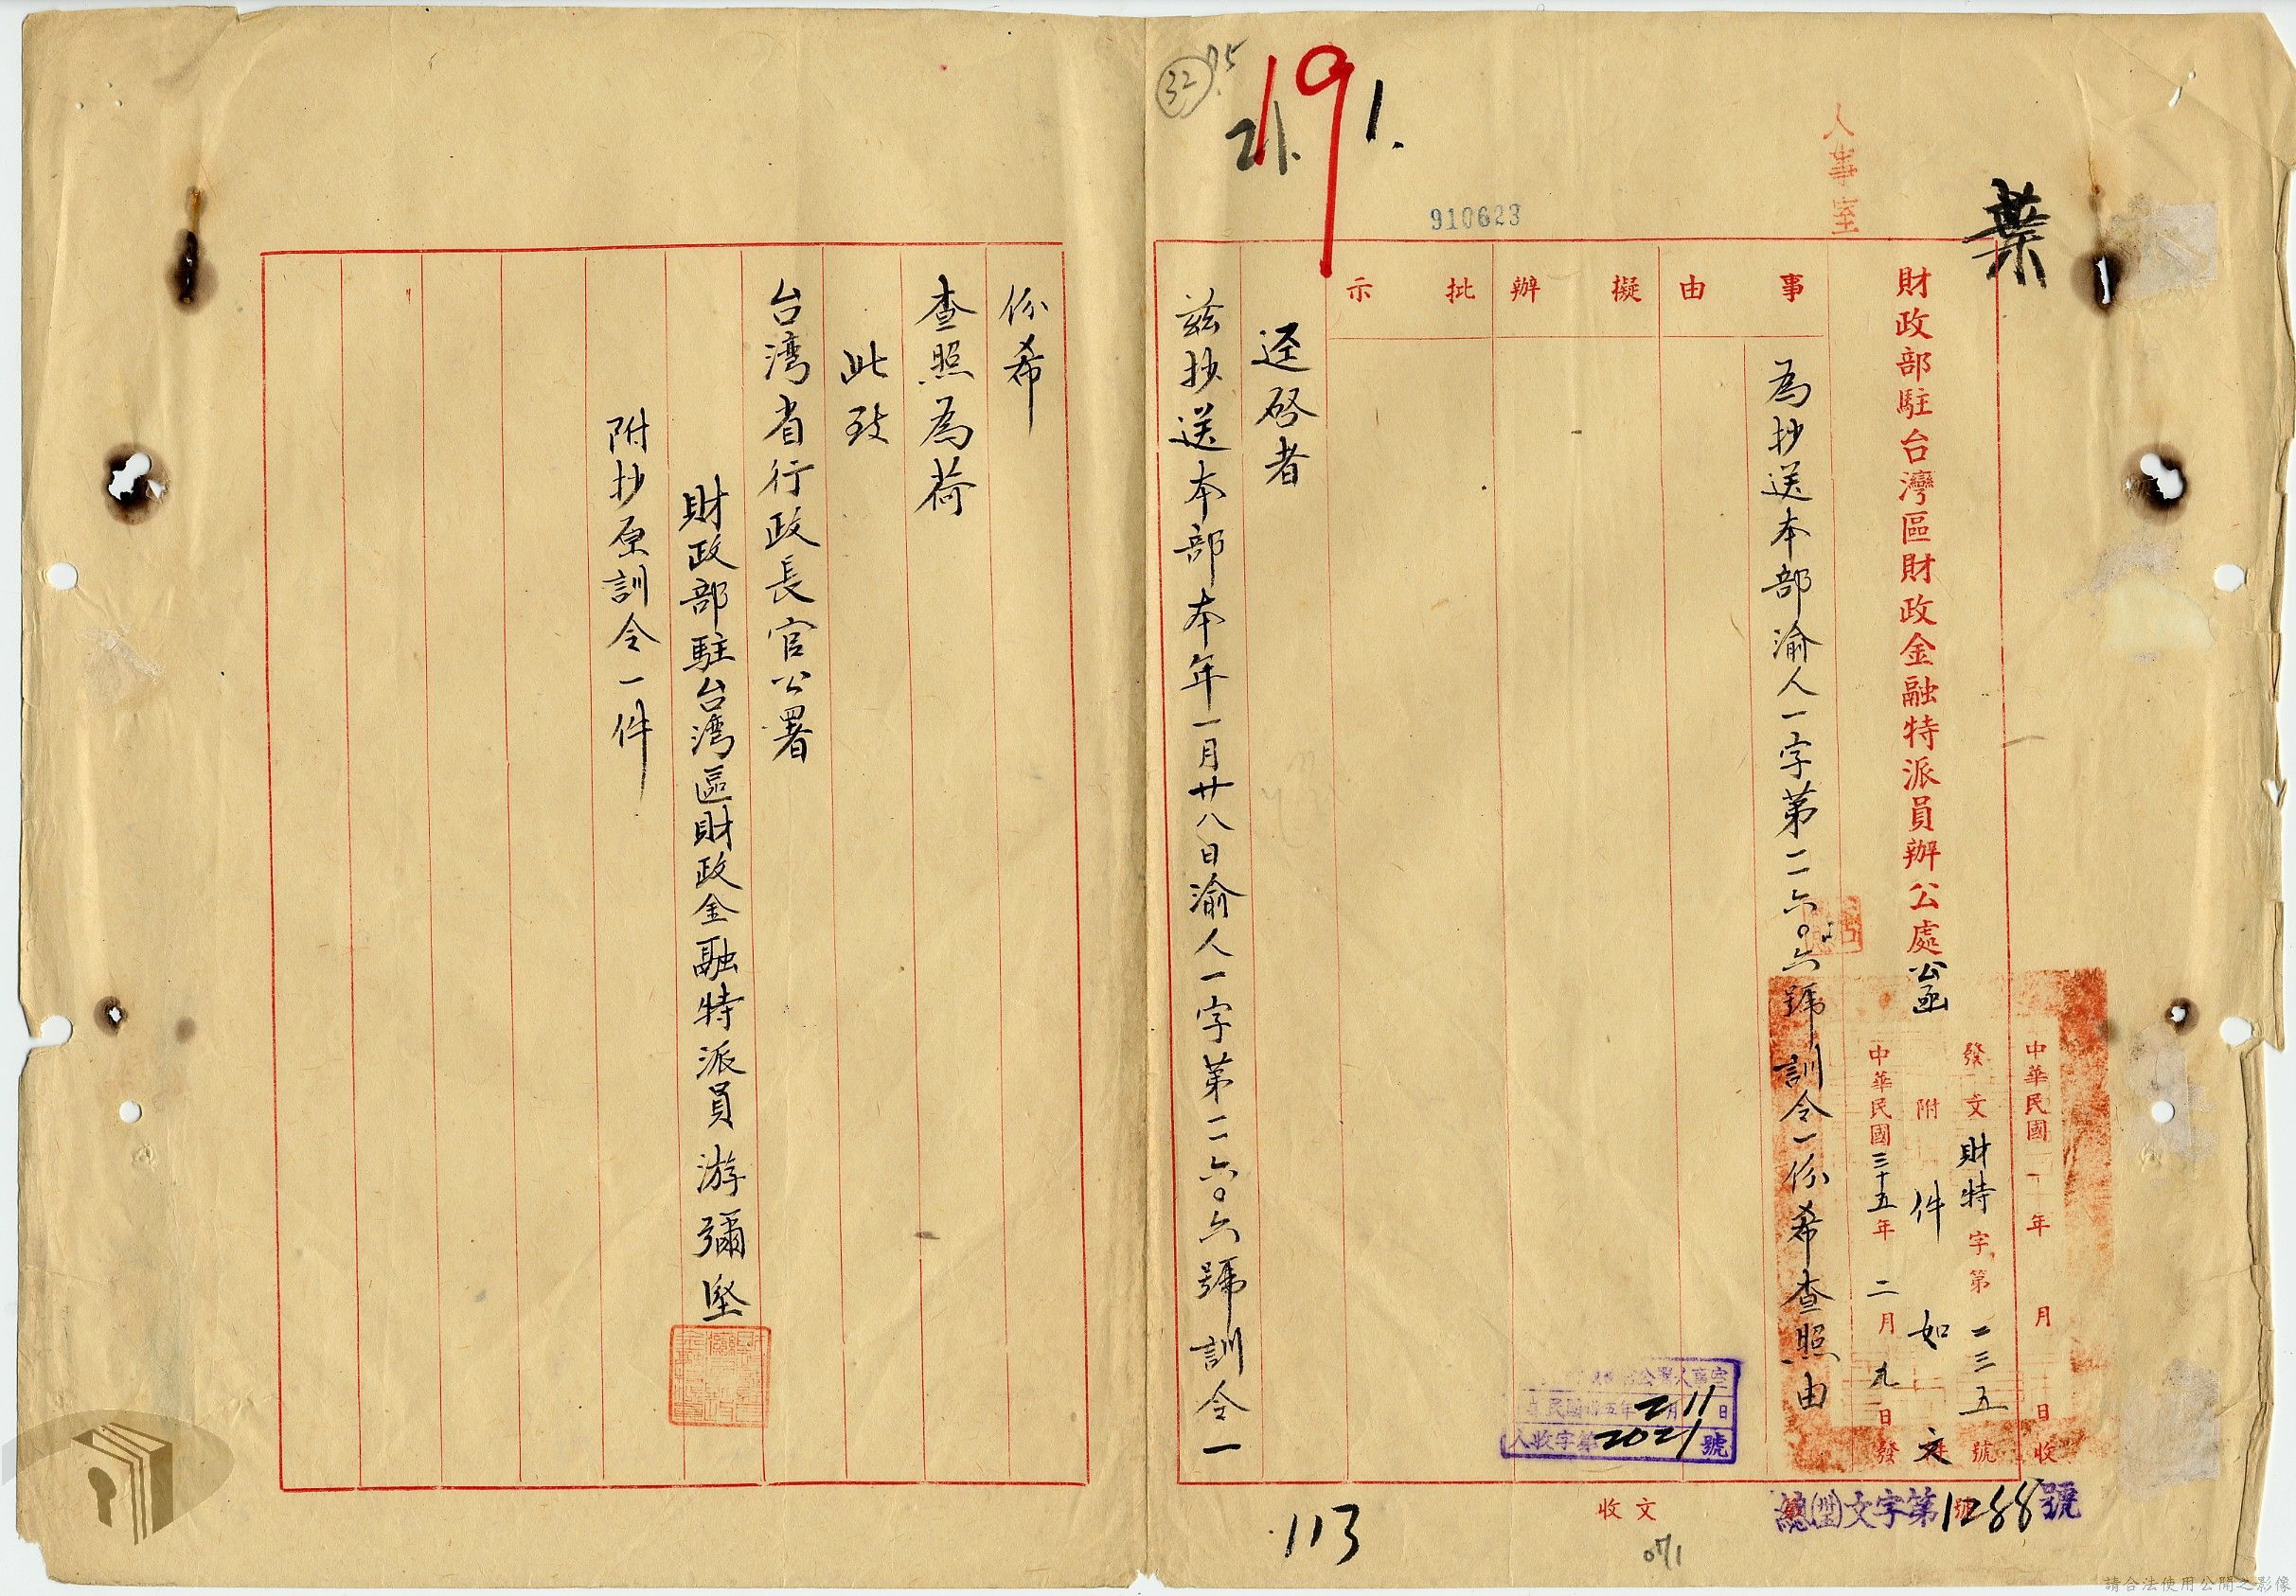 葉
人事室
財政部駐台灣區財政金融特派員辦公處公函
中華民國 年 月 日收
發文財特字第二三五號
附件如文
中華民國三十五年二月九日發
事由
為抄送本部渝人一字第二六〇六號訓令一份希查照由
擬辦
批示
迳启者
茲抄送本部本年一月廿八日渝人一字第二六〇六號訓令一
份希
查照為荷
此致
台湾省行政長官公署
財政部駐台湾區財政金融特派員游彌坚
附抄原訓令一件
32
21.
191.
910623
2月11日
人收字第2021號
收文
文字第1288號
113
071
請合法使用公開之影像